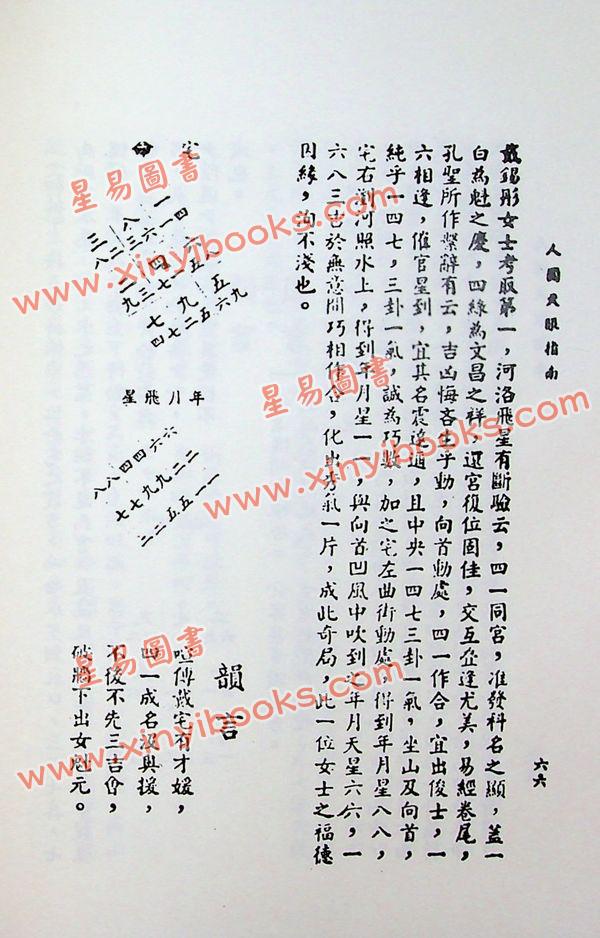 人間天眼指南
六六
戴錫彤女士考取第一，河洛飛星有斷驗云，四一同宮，准發科名之顯，蓋一
白為魁之慶，四綠為文昌之祥，還宮復位固佳，交互叠逢尤美，易經卷尾，
孔聖所作繫辭有云，吉凶悔吝生乎動，向首動處，四一作合，宜出俊士，一
六相逢，催官星到，宜其名震遐邇，且中央一四七三卦一氣，坐山及向首，
純乎一四七，三卦一氣，誠為巧數，加之宅左曲街動處，得到年月星八八，
宅右劉河照水上，得到年月星一一，與向首凹風中吹到之年月天星六六，一
六八三吉於無意間巧相作合，化出秀氣一片，成此奇局，此一位女士之福德
因緣，洵不淺也。
宅命
年月飛星
八八四四六六
七七九九二二
五五一一
韻言
喧傳戴宅有才媛，
四一成名沒與援，
不後不先三吉會，
破牆下出女魁元。
星易圖書
www.xinyibooks.com
星易圖書
www.xinyibooks.com
星易圖書
www.xinyibooks.com